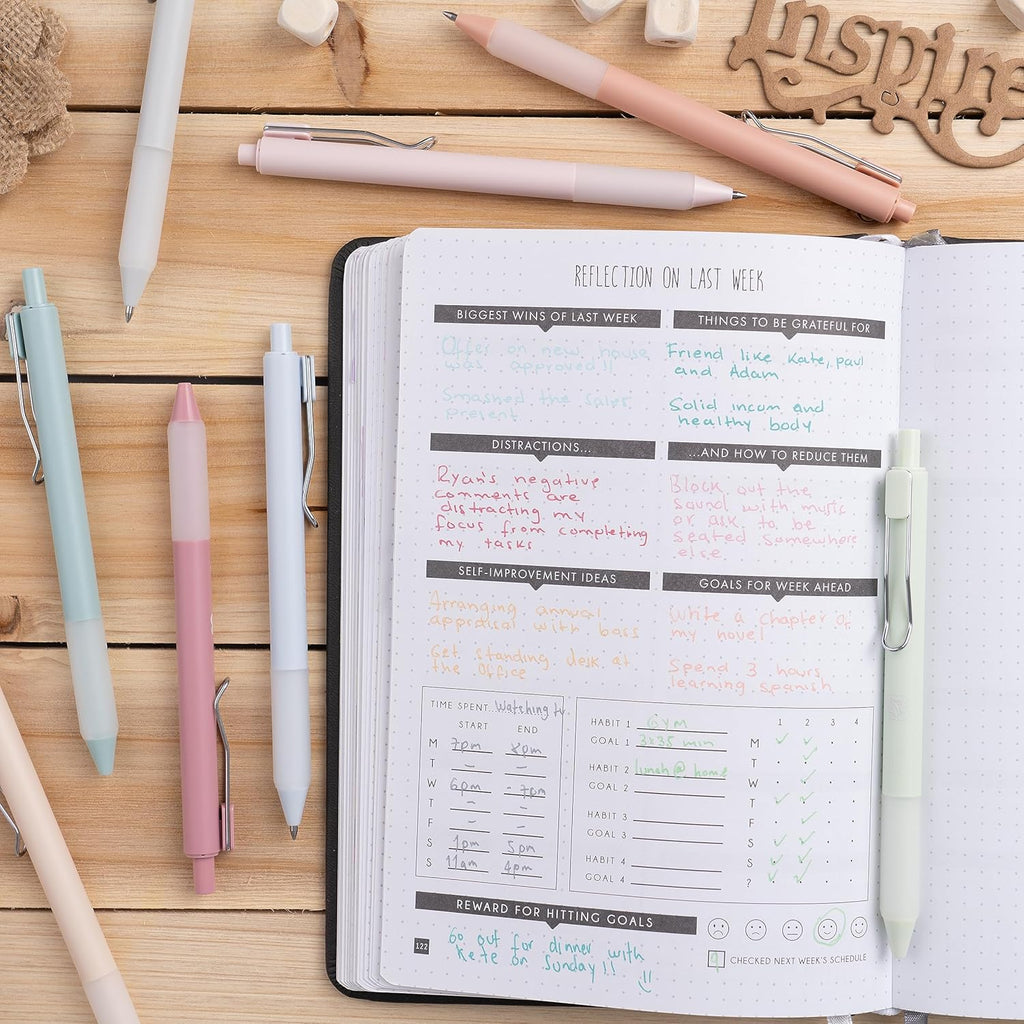 Inspire
REFLECTION ON LAST WEEK
BIGGEST WINS OF LAST WEEK
Offer on new house
was approved!!
Smashed the sales
present
THINGS TO BE GRATEFUL FOR
Friend like Kate, paul
and Adam
Solid incom and
healthy body
DISTRACTIONS...
Ryan's negative
comments are
distracting my
focus from completing
my tasks
...AND HOW TO REDUCE THEM
Block out the
sound with music
or ask to be
seated somewhere
else
SELF-IMPROVEMENT IDEAS
Arranging annual
appraisal with boss
Get standing desk at
the office
GOALS FOR WEEK AHEAD
Write a chapter of
my novel
Spend 3 hours
learning spanish
TIME SPENT... Watching tv
START END
M 7pm 8pm
T - -
W 6pm - 7pm
T - -
F - -
S 1pm 5pm
S 11am 4pm
HABIT 1 Gym
GOAL 1 3x35 min
HABIT 2 lunch @ home
GOAL 2
HABIT 3
GOAL 3
HABIT 4
GOAL 4
1 2 3 4
M ✓ ✓
T ✓
W ✓
T ✓ ✓
F ✓
S ✓ ✓
S ✓ ✓
? ✓ ✓
REWARD FOR HITTING GOALS
122
Go out for dinner with
Kate on Sunday!!
CHECKED NEXT WEEK'S SCHEDULE